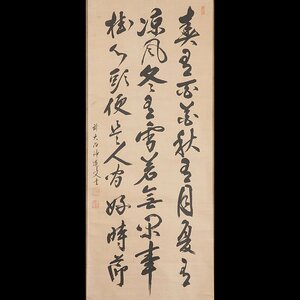 春有百花秋有月夏有
凉風冬有雪若無閑事
掛心頭便是人間好時節